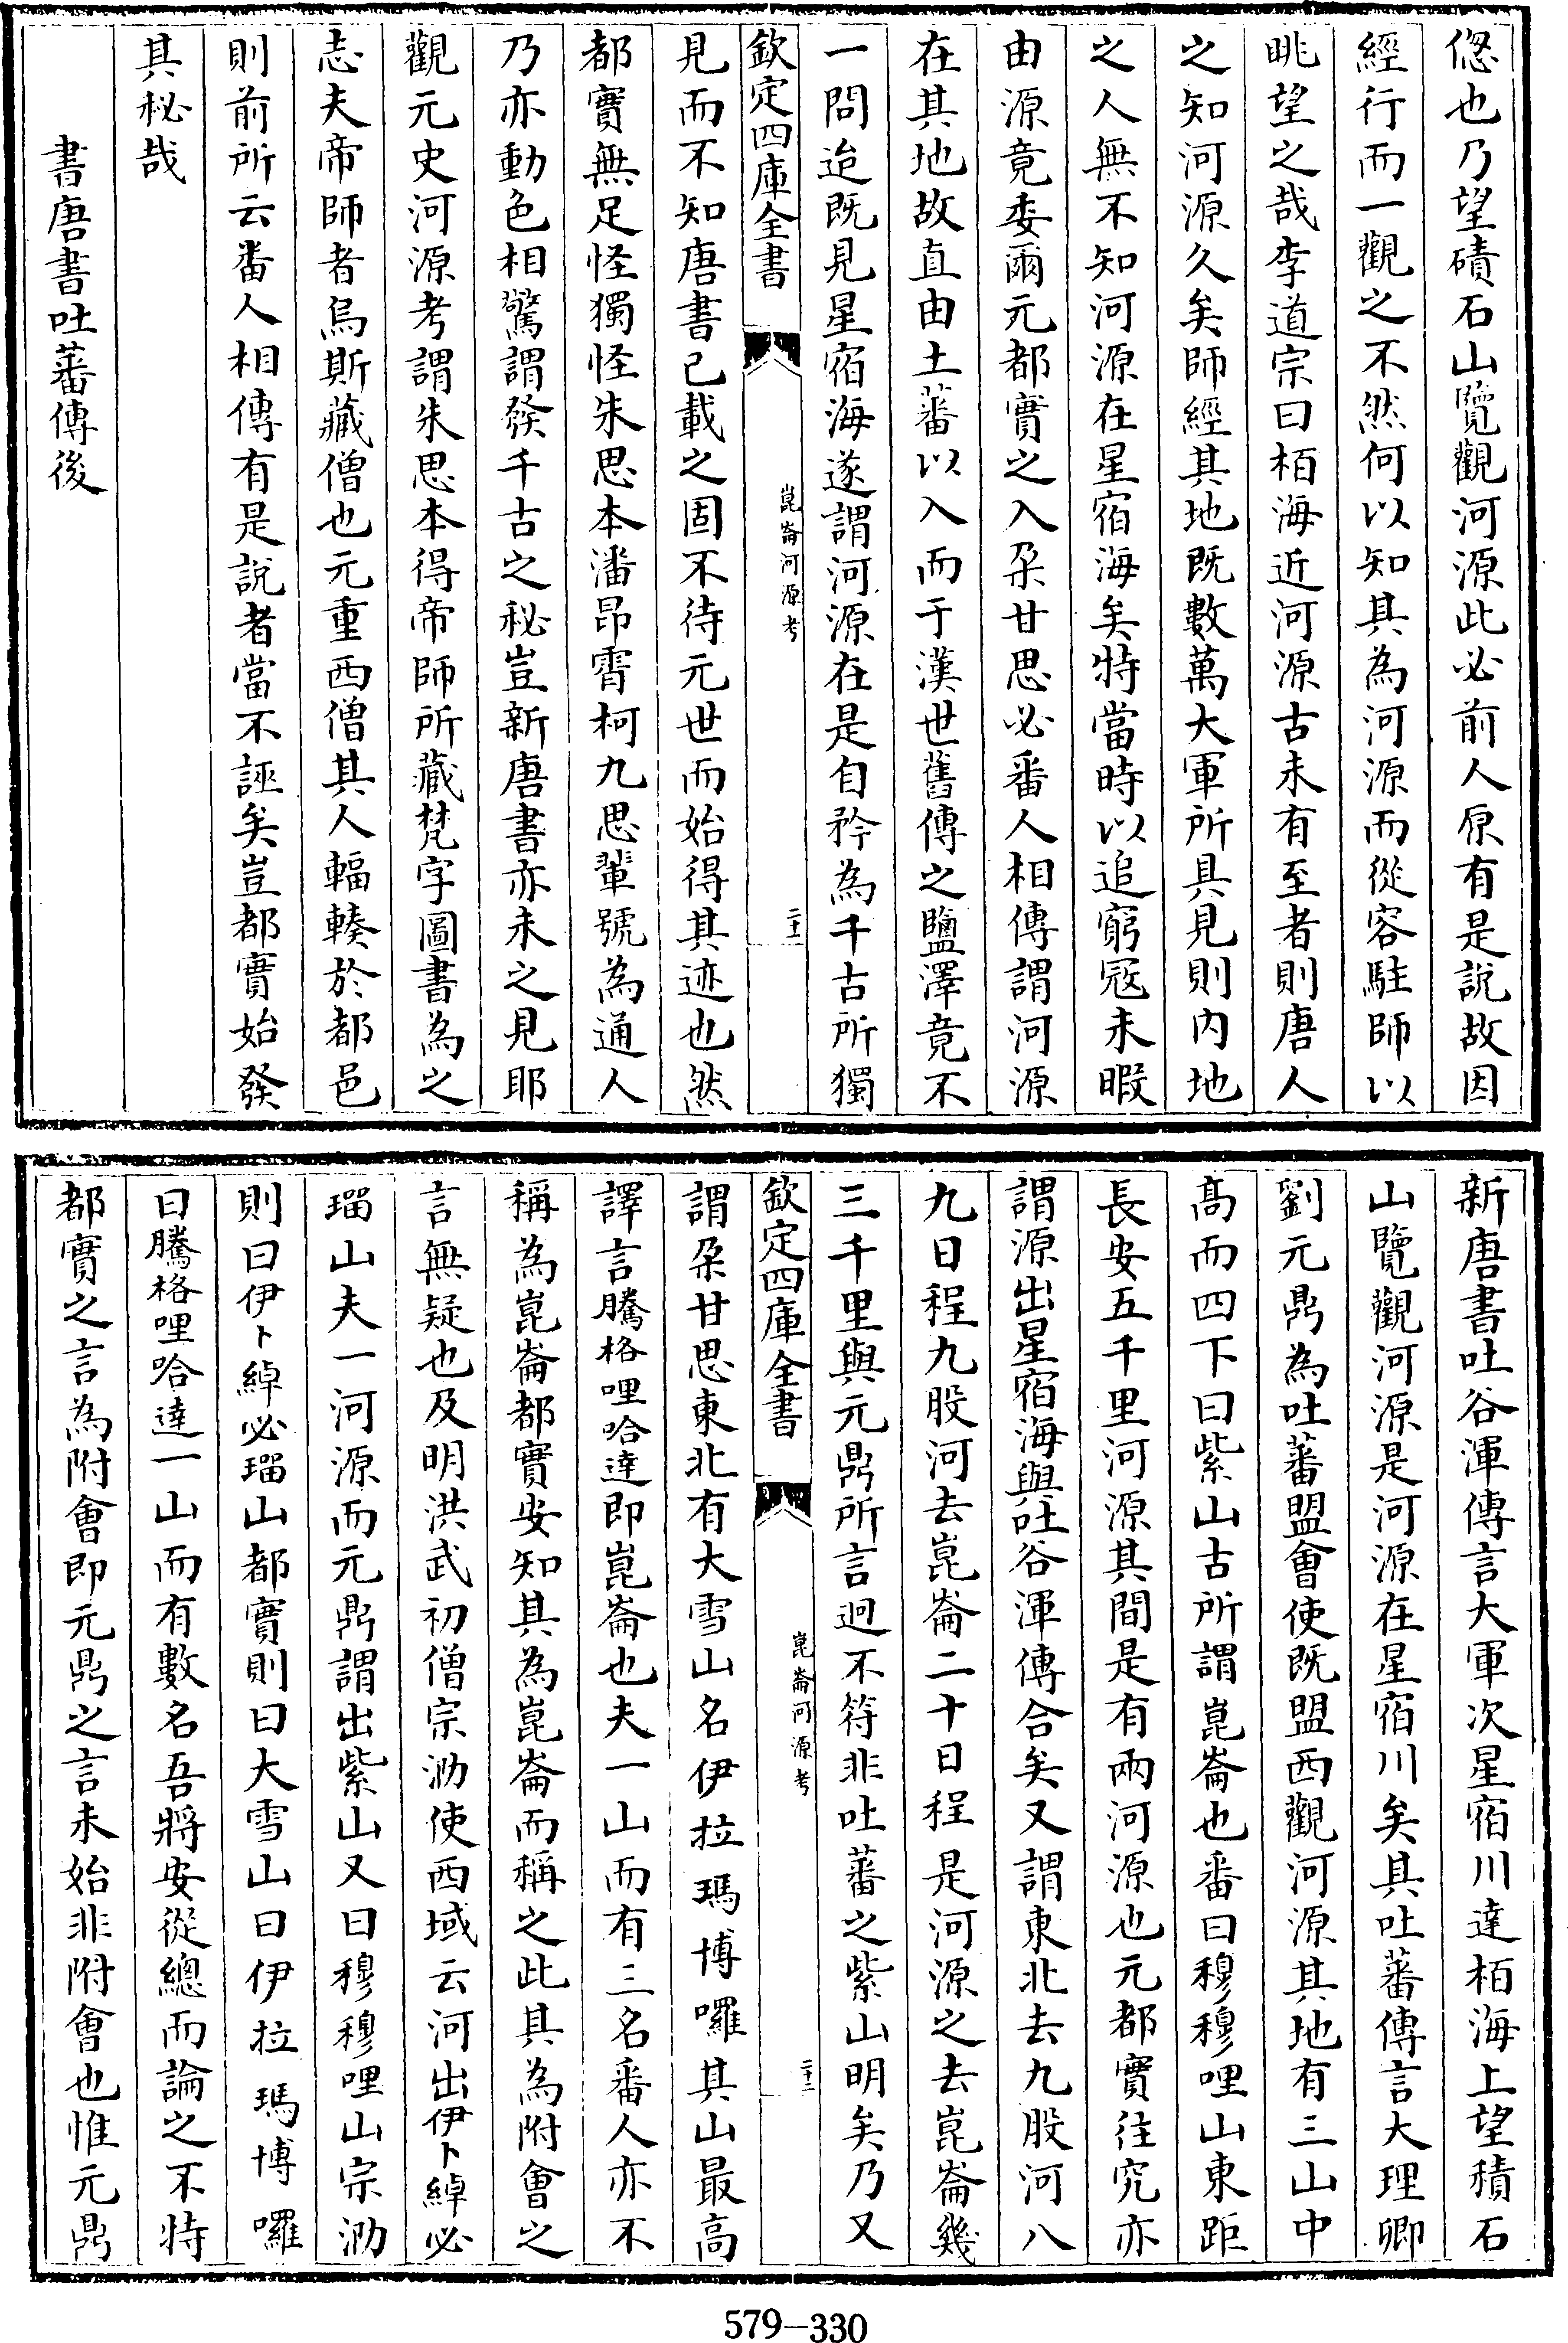 偬也乃望磧石山覽觀河源此必前人原有是說故因
經行而一觀之不然何以知其為河源而從容駐師以
眺望之哉李道宗曰栢海近河源古未有至者則唐人
之知河源久矣師經其地既數萬大軍所具見則内地
之人無不知河源在星宿海矣特當時以追窮冦未暇
由源竟委爾元都實之入朶甘思必番人相傳謂河源
在其地故直由土蕃以入而于漢世舊傳之鹽澤竟不
一問迨既見星宿海遂謂河源在是自矜為千古所獨
欽定四庫全書
崑崙河源考
二十一
見而不知唐書已載之固不待元世而始得其迹也然
都實無足怪獨怪朱思本潘昂霄柯九思輩號為通人
乃亦動色相驚謂發千古之秘豈新唐書亦未之見耶
觀元史河源考謂朱思本得帝師所藏梵字圖書為之
志夫帝師者烏斯藏僧也元重西僧其人輻輳於都邑
則前所云畨人相傳有是說者當不誣矣豈都實始發
其秘哉
書唐書吐蕃傳後
新唐書吐谷渾傳言大軍次星宿川達栢海上望積石
山覽觀河源是河源在星宿川矣其吐蕃傳言大理卿
劉元鼎為吐蕃盟會使既盟西觀河源其地有三山中
髙而四下曰紫山古所謂崑崙也番曰穆穆哩山東距
長安五千里河源其間是有兩河源也元都實往究亦
謂源出星宿海與吐谷渾傳合矣又謂東北去九股河八
九日程九股河去崑崙二十日程是河源之去崑崙幾
三千里與元鼎所言迥不符非吐蕃之紫山明矣乃又
欽定四庫全書
崑崙河源考
二十二
謂朶甘思東北有大雪山名伊拉瑪博囉其山最高
譯言騰格哩哈達即崑崙也夫一山而有三名番人亦不
稱為崑崙都實安知其為崑崙而稱之此其為附會之
言無疑也及明洪武初僧宗泐使西域云河出伊卜綽必
瑠山夫一河源而元鼎謂出紫山又曰穆穆哩山宗泐
則曰伊卜綽必瑠山都實則曰大雪山曰伊拉瑪博囉
曰騰格哩哈達一山而有數名吾將安從總而論之不特
都實之言為附會即元鼎之言未始非附會也惟元鼎
579-330